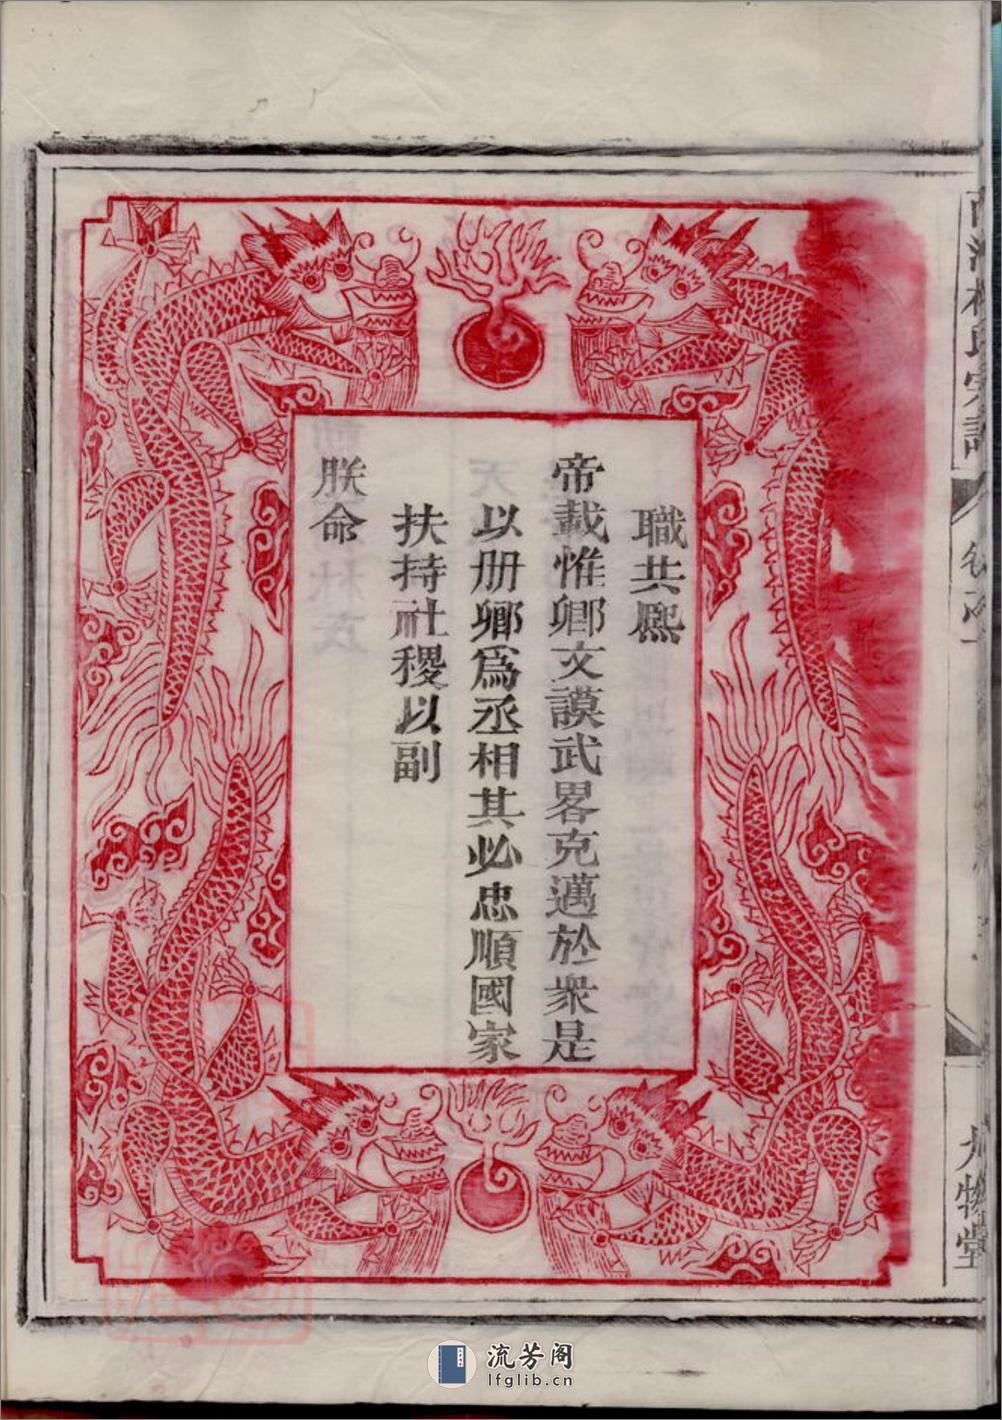 職共熈
帝載惟卿文謨武畧克邁於衆是
以册卿爲丞相其必忠順國家
扶持社稷以副
朕命
氏宗譜
物堂
流芳阁
lfglib.cn